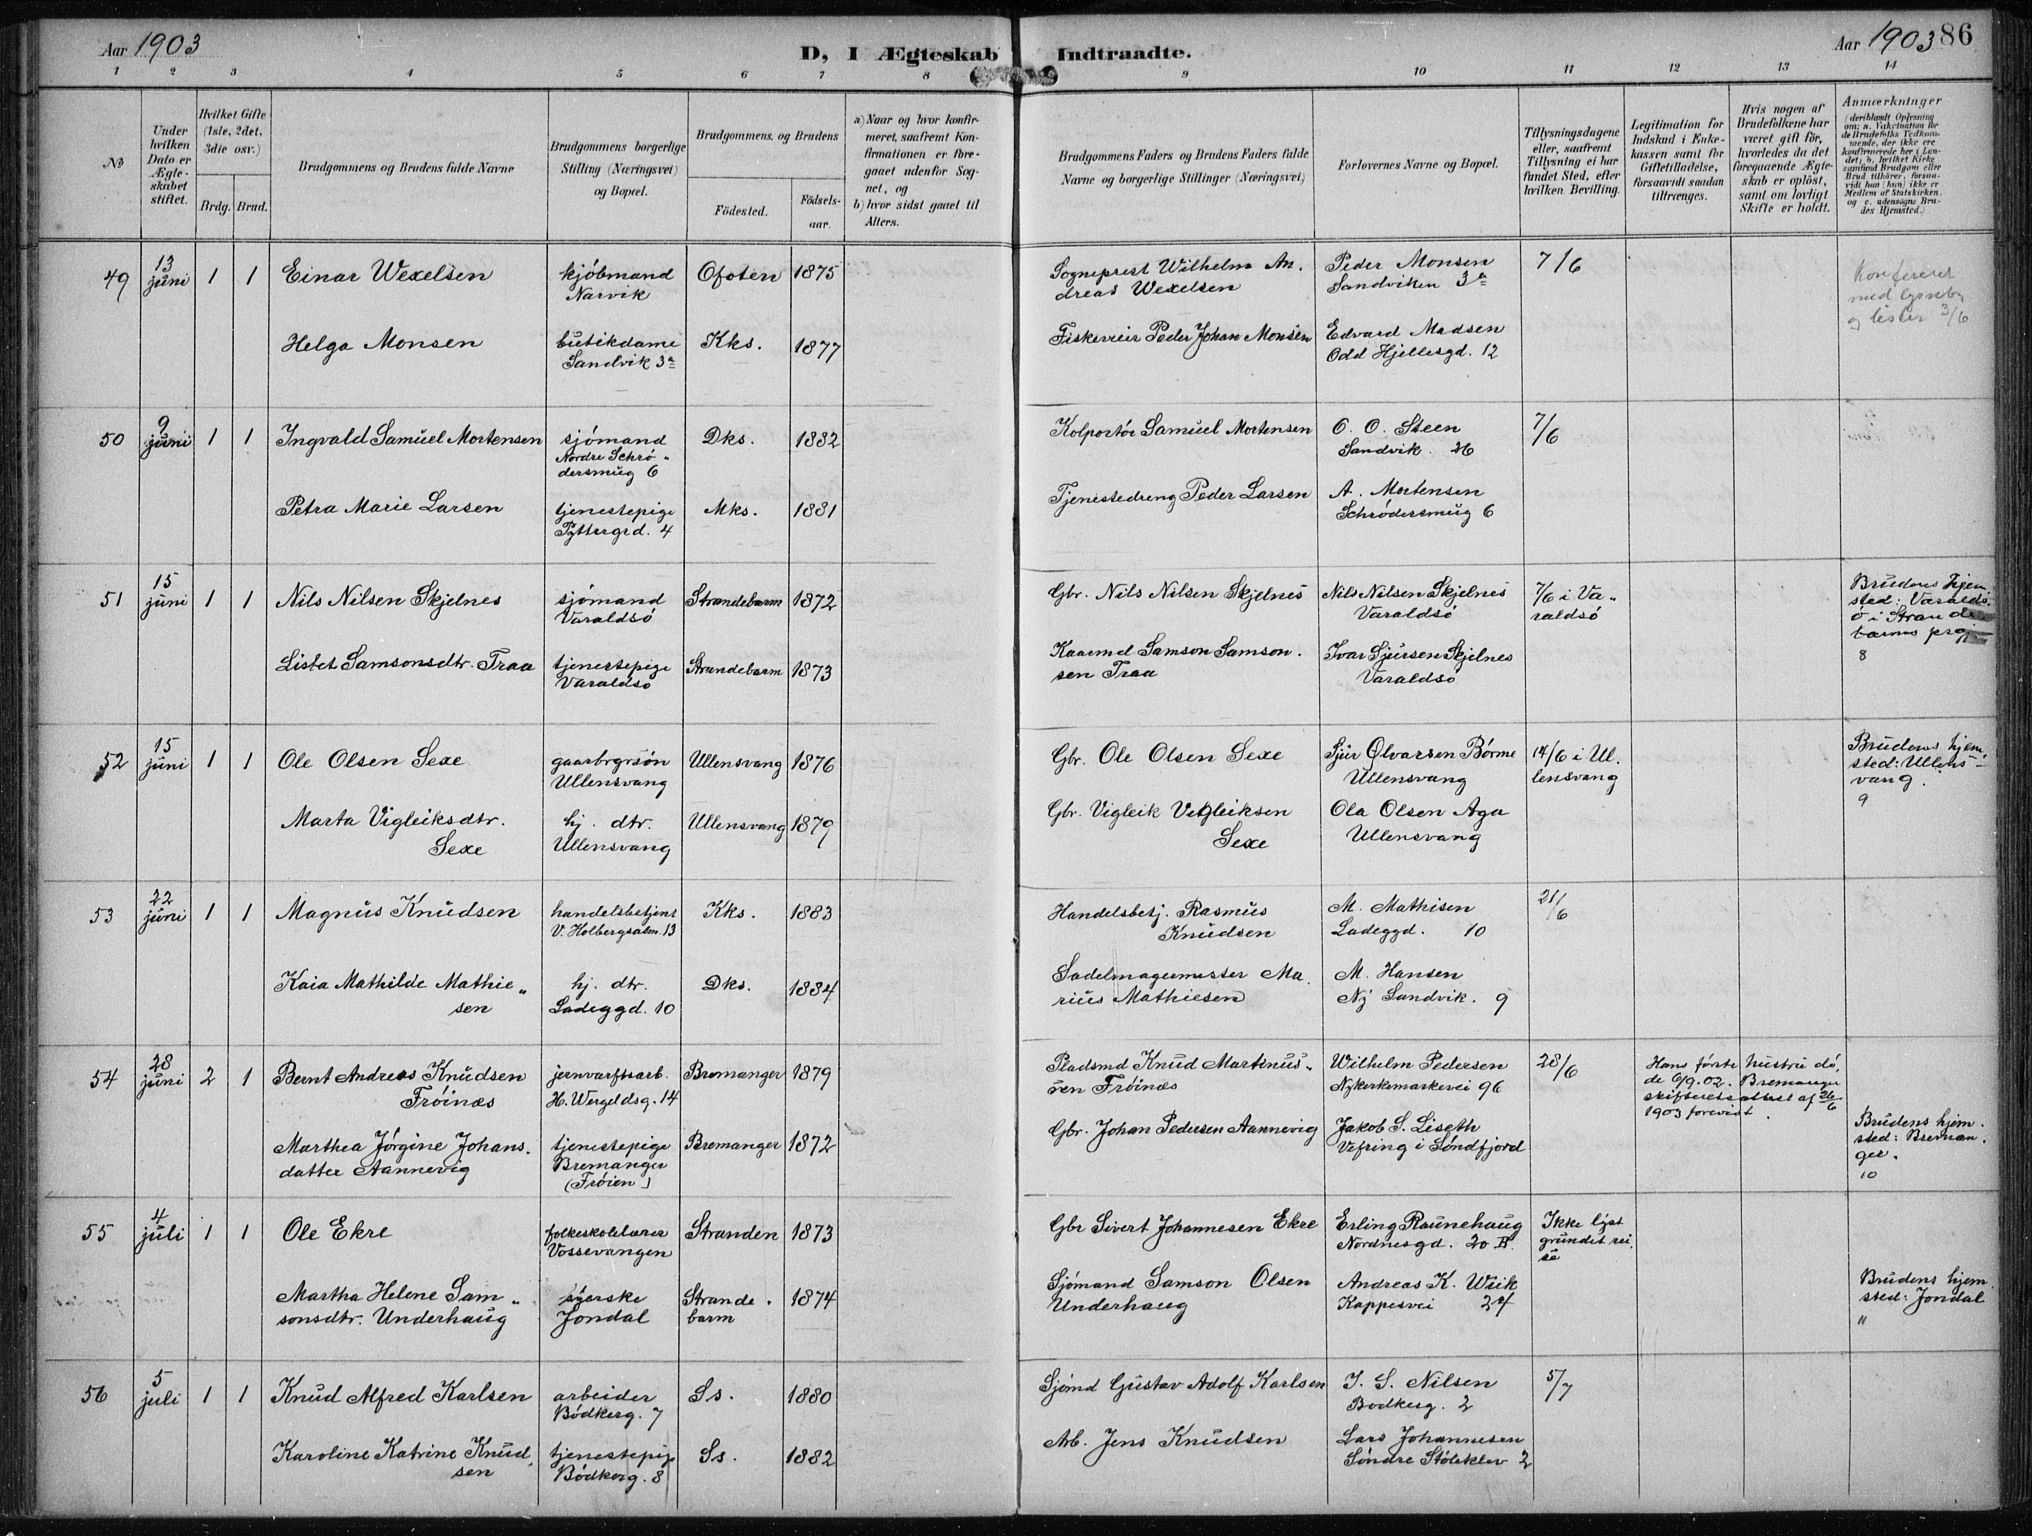 Aar 1903
D, I Ægteskab Indtraadte.
Aar 1903 86
1 2 3 4 5 6 7 8 9 10 11 12 13 14
No
Under hvilken Dato er Ægteskabet stiftet.
Hvilket Gifte (1ste, 2det, 3die osv.)
Brdg. Brud.
Brudgommens og Brudens fulde Navne
Brudgommens borgerlige Stilling (Næringsvei) og Bopæl.
Brudgommens og Brudens
Födested.
Födsels-aar.
a) Naar og hvor konfirmeret, saafremt Konfirmationen er foregaaet udenfor Sognet, og
b) hvor sidst gaaet til Alters.
Brudgommens Faders og Brudens Faders fulde Navne og borgerlige Stillinger (Næringsvei)
Forlovernes Navne og Bopæl.
Tillysningsdagene eller, saafremt Tillysning ei har fundet Sted, efter hvilken Bevilling.
Legitimation for Indskud i Enkekassen samt for Giftetilladelse, forsaavidt saadan tiltrænges.
Hvis nogen af Brudefolkene har været gift för, hvorledes da det foregaaende Ægteskab er oplöst, samt om lovligt Skifte er holdt.
Anmærkninger (deriblandt Oplysning om: a. Vaksination for de Brudefolks Vedkommende, der ikke ere konfirmerede her i Landet; b. hvilket Kirkesamfund Brudgom eller Brud tilhörer, forsaavidt han (hun) ikke er Medlem af Statskirken, og c. udensogns Brudes Hjemsted.)
49 13 juni 1 1 Einar Wexelsen kjøbmand Narvik Ofoten 1875 Sogneprest Wilhelm Andreas Wexelsen Peder Monsen Sandviken 3a 7/6
Konfererer med lysseb. og lister 3/6
Helga Monsen butikdame Sandvik 3a Kks. 1877 Fiskeveier Peder Johan Monsen Edvard Madsen Odd Hjeltesgd. 12
50 9 juni 1 1 Ingvald Samuel Mortensen sjömand Nordre Schrö„dersmug 6 Dks. 1882 Kolportör Samuel Mortensen O. O. Steen Sandvik. 26 7/6
Petra Marie Larsen tjenestepige Pyttergrd. 4 Mks. 1881 Tjenestedreng Peder Larsen A. Mortensen Schrödersmug 6
51 15 juni 1 1 Nils Nilsen Skjelnes sjömand Varaldsö Strandebarm 1872 Gbr. Nils Nilsen Skjelnes Nils Nilsen Skjelnes Varaldsö 7/6 i Va„raldsö
Brudens hjemsted: Varaldsö i Strandebarms prgj. 8
Lisbet Samsonsdtr. Traa tjenestepige Varaldsö Strandebarm 1873 Kaarmd Samson Samson.sen Traa Ivar Sjursen Skjelnes Varaldsö
52 15 juni 1 1 Ole Olsen Sexe gaarbrgrsön Ullensvang Ullensvang 1876 Gbr. Ole Olsen Sexe Sjur Olvarsen Börme Ullensvang 14/6 i Ul.lensvang
Brudens hjemsted: Ullensvang. 9
Marta Vigleiksdtr. Sexe hj. dtr. Ullensvang Ullensvang 1879 Gbr. Vigleik Vigleiksen Sexe Ola Olsen Aga Ullensvang
53 22 juni 1 1 Magnus Knudsen handelsbetjent V. Holbergsalm. 13 Kks. 1883 Handelsbetj. Rasmus Knudsen M. Mathisen Ladeggd. 10 21/6
Kaia Mathilde Mathie„sen hj. dtr. Ladeggd. 10 Dks. 1884 Sadelmagermester Ma.rius Mathiesen M. Hansen Ny Sandvik. 9
54 28 juni 2 1 Bernt Andreas Knudsen Fröinæs jernvarftsarb. H. Wergeldsg. 14 Bremanger 1879 Pladsmd Knud Martinus„sen Fröinæs Wilhelm Pedersen Nykirksmarkevei 96 28/6
Hans förste hustru dö,de 6/9.02. Bremanger skifteretsattest af 26/6 1903 forevist.
Marthea Jörgine Johans.datter Aannevig tjenestepige Bremanger (Fröien) Bremanger 1872 Gbr. Johan Pedersen Aannevig Jakob S. Liseth Vefring i Söndfjord
Brudens hjem.sted: Breman.ger. 10
55 4 juli 1 1 Ole Ekre folkeskolelærer Vossevangen Stranden 1873 Gbr Sivert Johannesen Ekre Erling Raunehaug Nordnesgd. 20 B. Ikke lyst grundet rei.se
Martha Helene Sam„sonsdtr. Underhaug syerske Jondal Strande.barm 1874 Sjömand Samson Olsen Underhaug Andreas K. Wiik Kappesvei 24
Brudens hjem.sted: Jondal 11
56 5 juli 1 1 Knud Alfred Karlsen arbeider Bödkerg. 7 Ss. 1880 Sjömd Gustav Adolf Karlsen J. S. Nilsen Bödkerg. 2 5/7
Karoline Katrine Knud.sen tjenestepige Bödkerg. 8 Ss. 1882 Arb. Jens Knudsen Lars Johannesen Söndre Stölekley 2